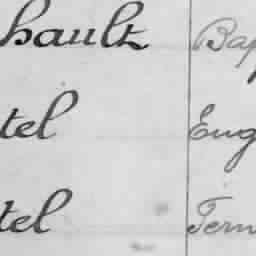 hault Bap
tel Eug
tel Fern